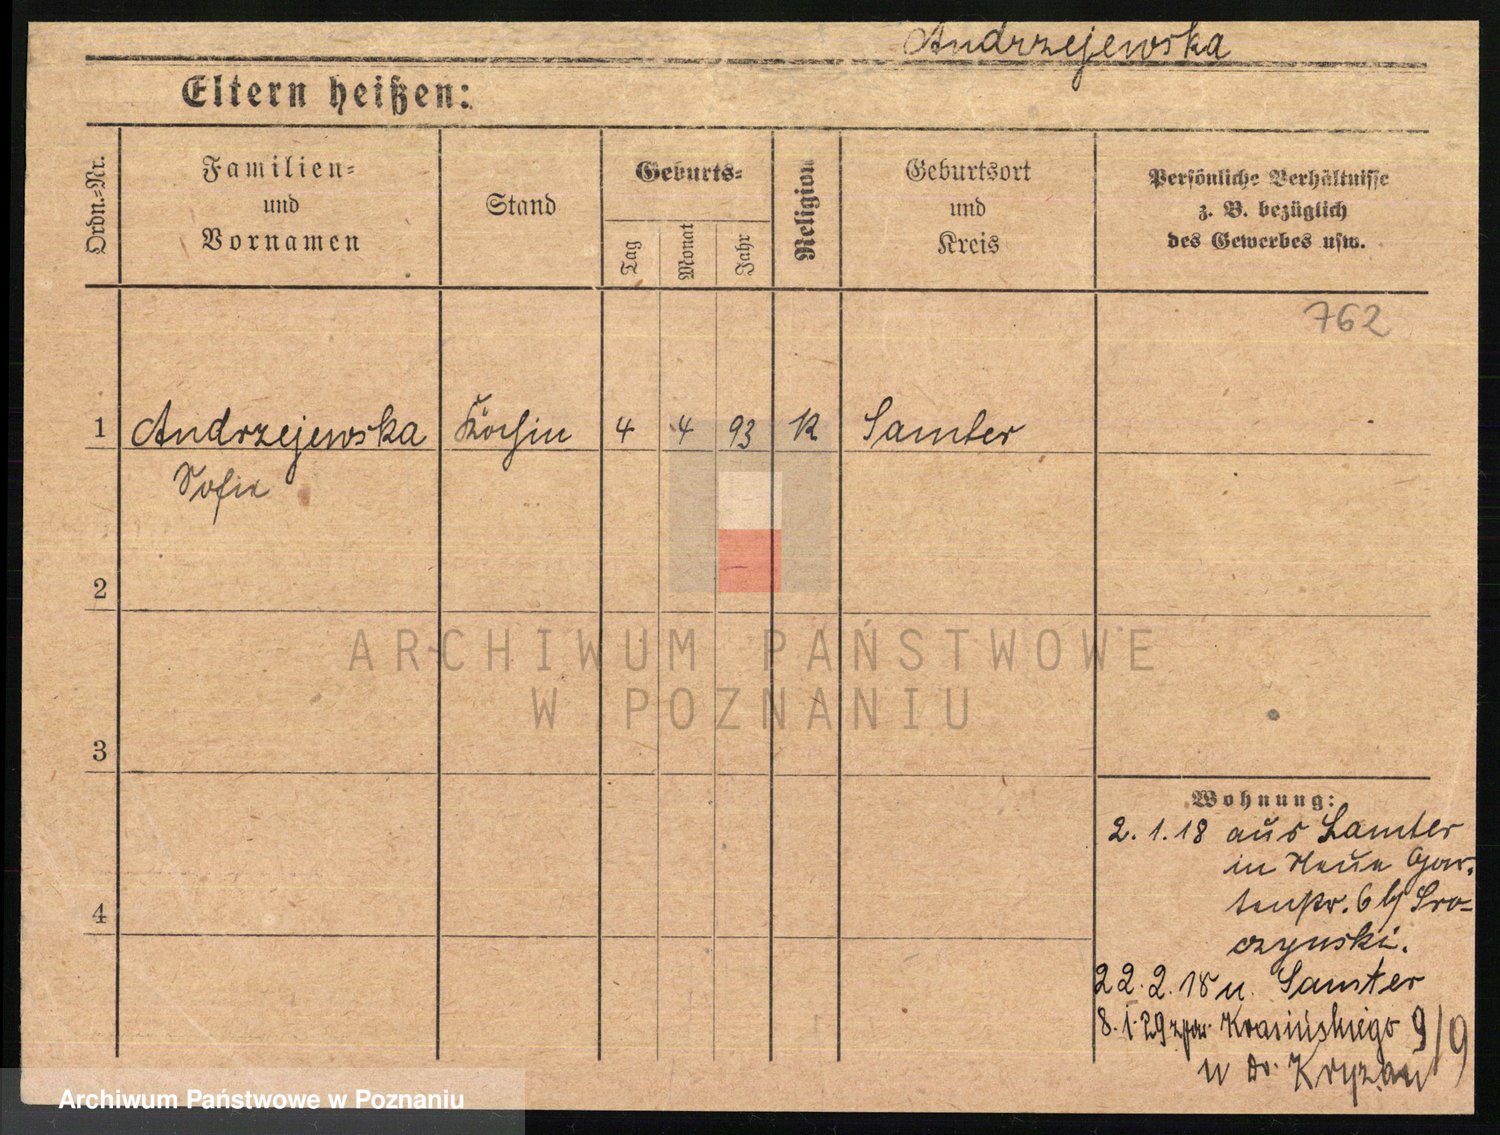 Andrzejewska
Eltern heißen:
Ordn.-Nr.
Familien-
und
Vornamen
Stand
Geburts-
Tag
Monat
Jahr
Religion
Geburtsort
und
Kreis
Persönliche Verhältnisse
z. B. bezüglich
des Gewerbes usw.
762
1 Andrzejewska Köchin 4 4 93 K Samter
Sofie
2
3
4
Wohnung:
2. 1. 18 aus Samter
in Neue Gar-
tenstr. 6 b/ Sro-
czynski.
22. 2. 18 n. Samter
8. 1. 29 Krasińskiego 9/9
u Dr.
ARCHIWUM PAŃSTWOWE
W POZNANIU
Archiwum Państwowe w Poznaniu